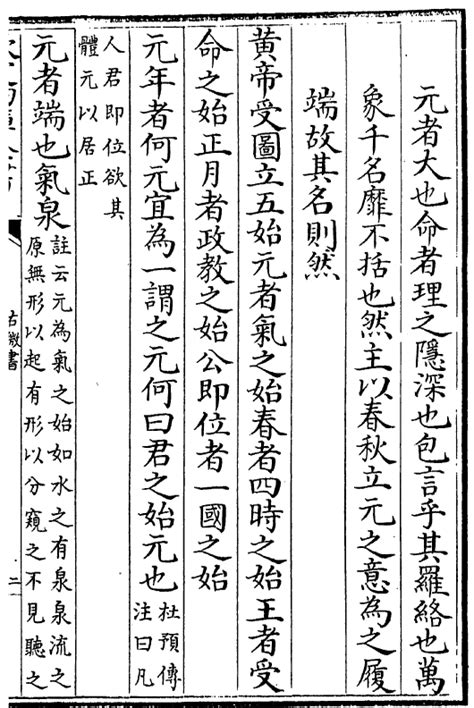 元者大也命者理之隱深也包言乎其羅絡也萬
象千名靡不括也然主以春秋立元之意為之履
端故其名則然
黄帝受圖立五始元者氣之始春者四時之始王者受
命之始正月者政教之始公即位者一國之始
元年者何元宜為一謂之元何曰君之始元也杜預傳
注曰凡
人君即位欲其
體元以居正
元者端也氣泉註云元為氣之始如水之有泉泉流之
原無形以起有形以分窺之不見聽之
古微書
二